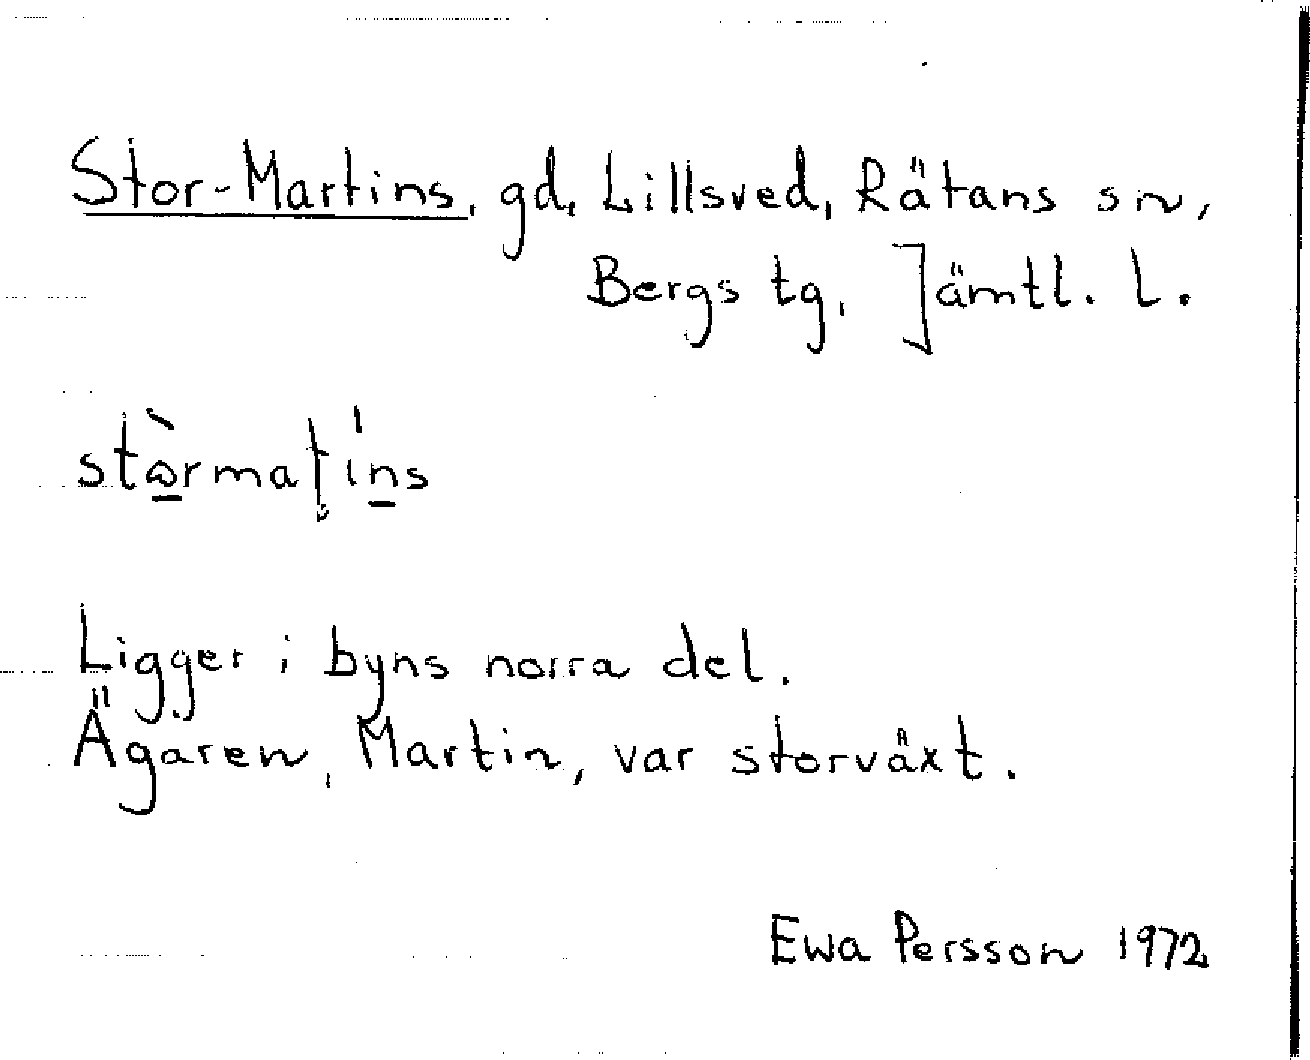 Stor-Martins, gd, Lillsved, Rätans sn,
Bergs tg, Jämtl. l.
stɷ̠̀rmaʈín̠s
Ligger i byns norra del.
Ägaren, Martin, var storväxt.
Ewa Persson 1972